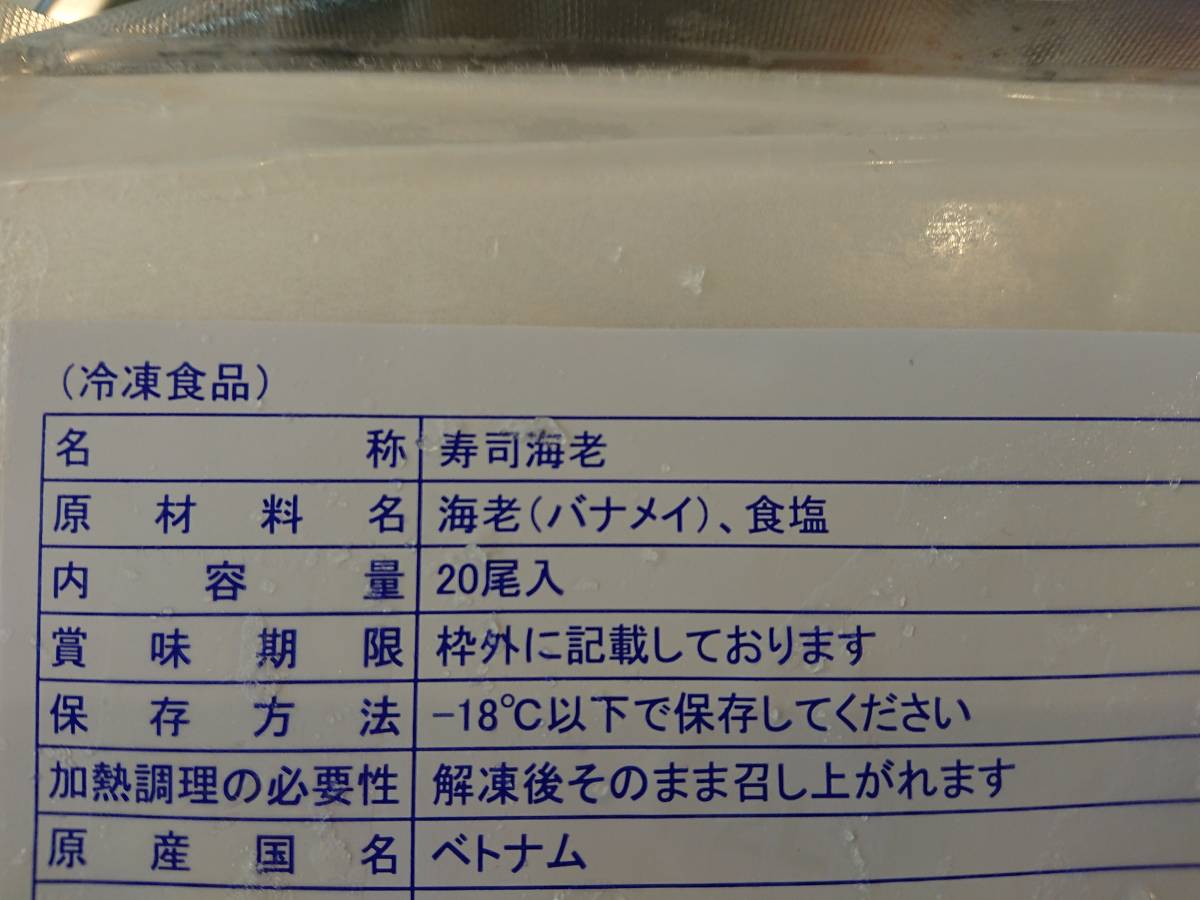 (冷凍食品)
名称 寿司海老
原材料名 海老(バナメイ)、食塩
内容量 20尾入
賞味期限 枠外に記載しております
保存方法 -18℃以下で保存してください
加熱調理の必要性 解凍後そのまま召し上がれます
原産国名 ベトナム